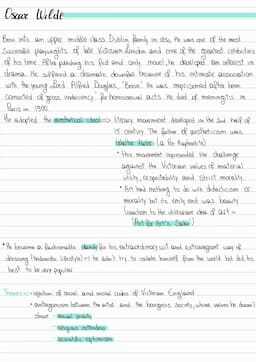 Oscar Wilde
Born into an upper middle class Dublin family in 1854, He was one of the most
successful playwrights of late Victorian London and one of the greatest celebrities
of his time. After publishing his first and only novel, he developed an interest in
drama. He suffered a dramatic downfall because of his intimate association
with the young Lord Alfred Douglas, "Bosie". He was imprisoned after been
convicted of gross indecency for homosexual acts. He died of meningitis in
Paris in 1900.
He adopted the aesthetical ideal => literary movement developed in the 2nd half of
19 century. The father of aestheticism was
Walter Pater (a Pre Raphaelite)
• This movement represented the challenge
against the Victorian values of material
utility, respectability and strict morality
• Art had nothing to do with didacticism or
morality but its only end was beauty
(reaction to the utilitarian idea of art =
"Art for Art's Sake")
• He became a fashionable dandy for his extraordinary wit and extravagant way of
dressing (hedonistic lifestyle) => he didn't try to isolate himself from the world but did his
best to be very popular
Themes => • rejection of social and moral codes of Victorian England
• antagonism between the artist and the bourgeois society, whose values he doesn't
share - moral probity
- religious orthodoxy
- scientific optimism